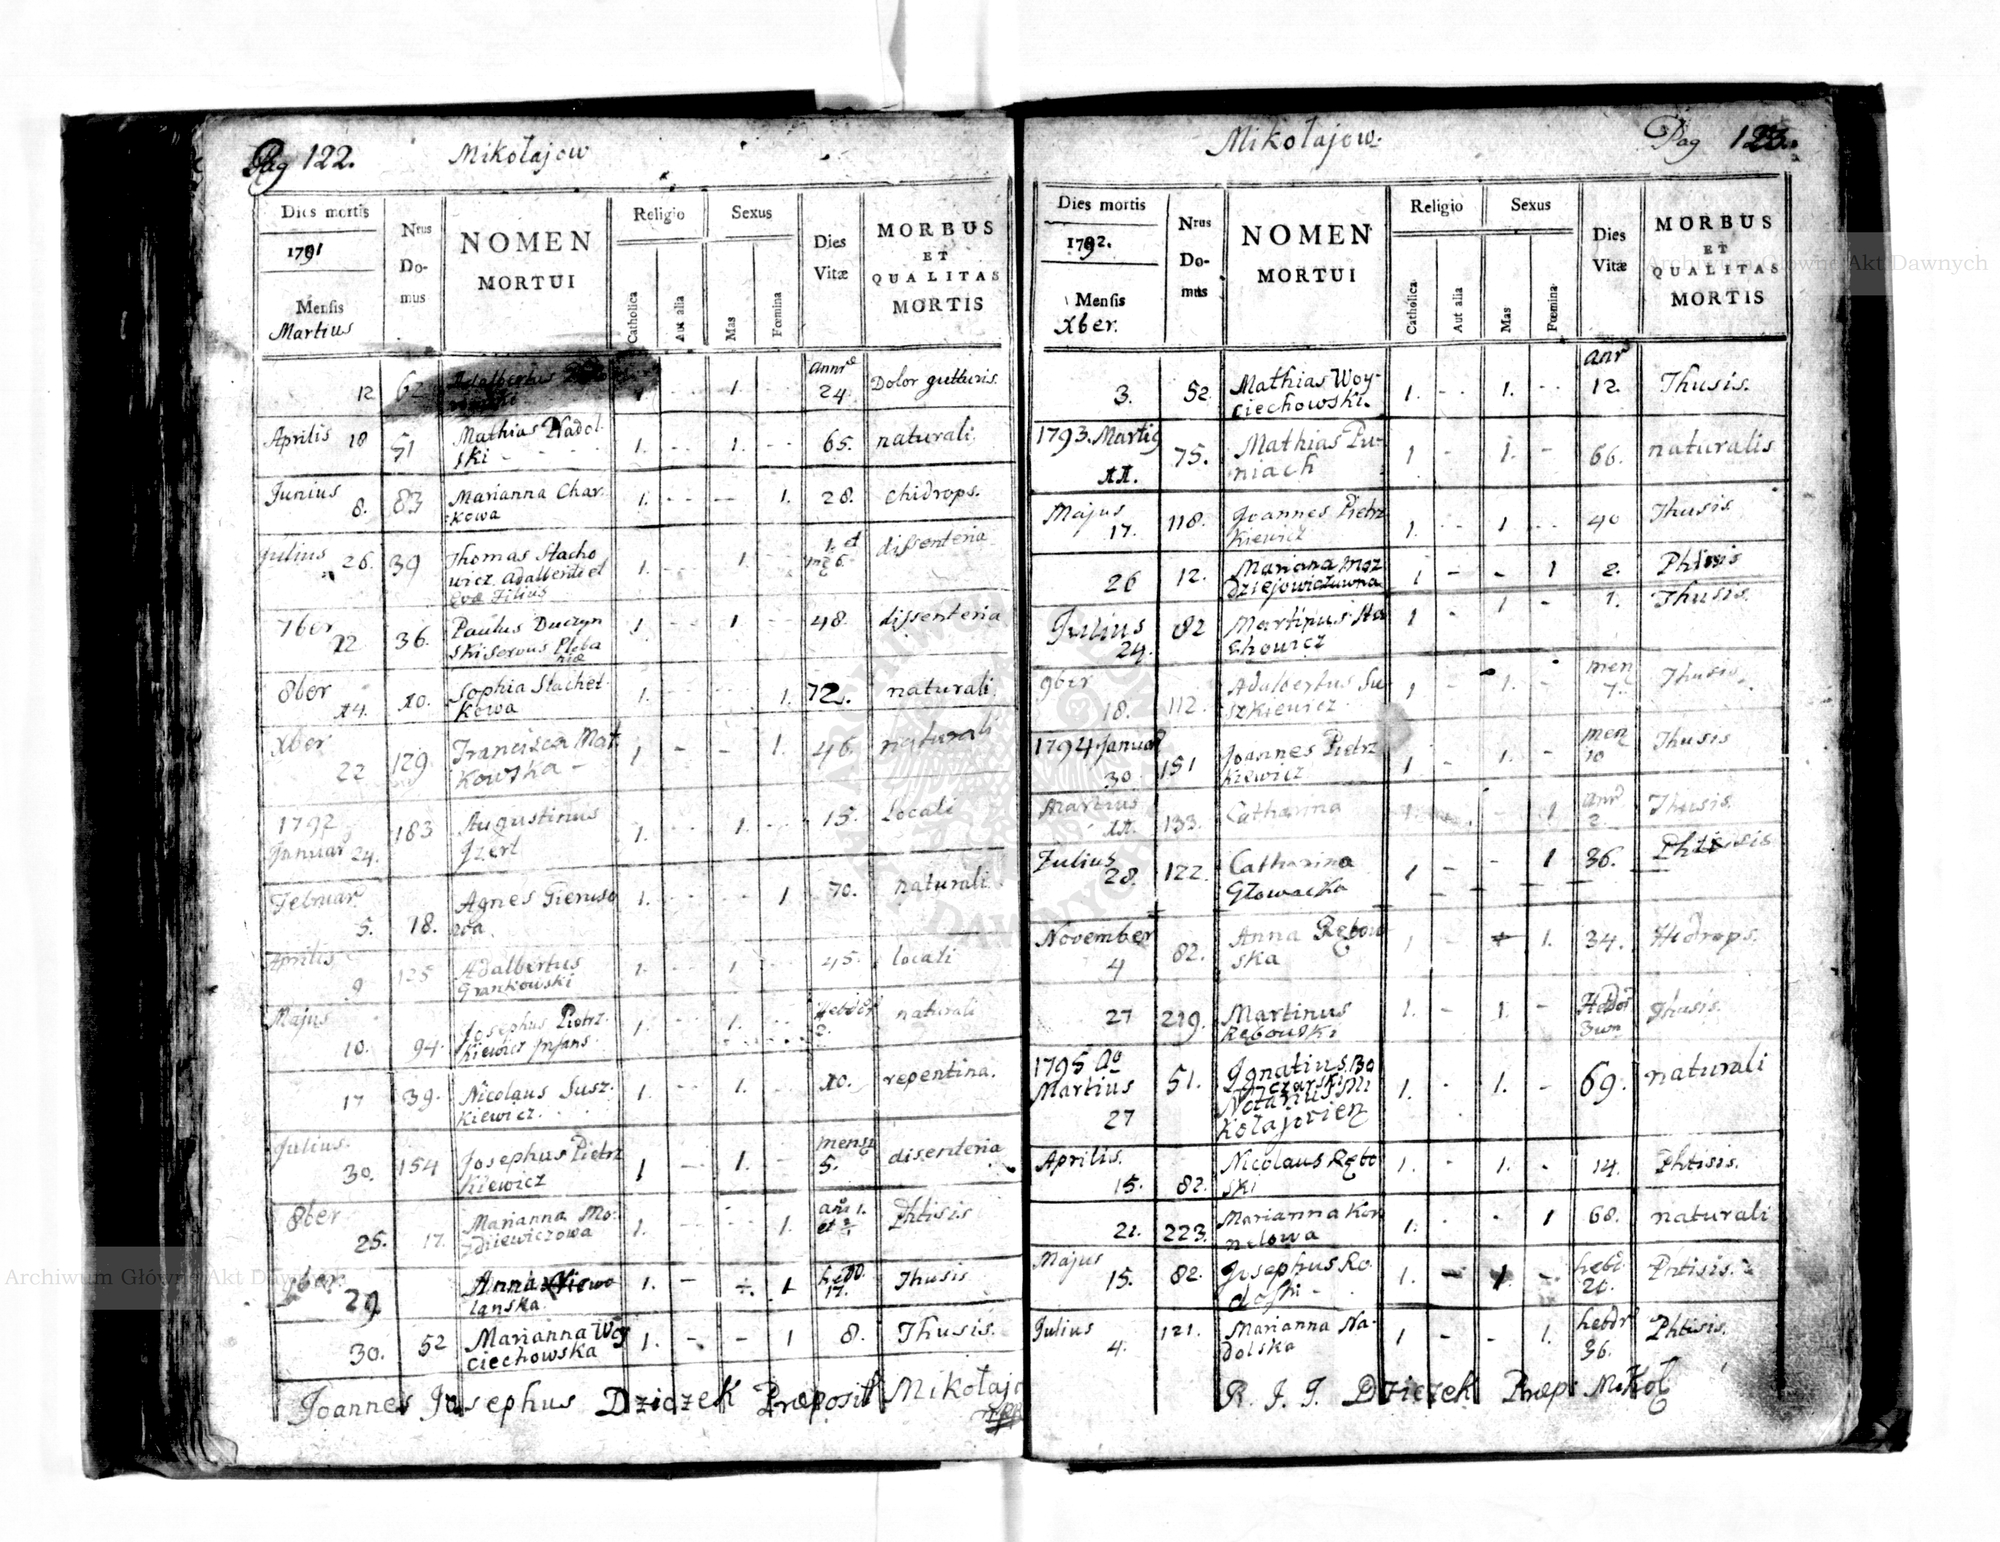 Pag 122. Mikołajow
Dies mortis
1791
Mensis
Martius
Nrus
Do-
mus
NOMEN
MORTUI
Religio
Catholica
Aut alia
Sexus
Mas
Fœmina
Dies
Vitæ
MORBUS
ET
QUALITAS
MORTIS
12 62 Adalbertus 1. 24 Dolor gutturis.
Aprilis 18 51 Mathias Nadol-
ski 1. 1. 65. naturali
Junius 8. 83 Marianna Char-
kowa 1. 1. 28. Chidrops.
Julius 26. 39 Thomas Stacho
wicz Adalberti et
Evæ Filius 1. 1. 1. et 6. dissenteria
7ber 12 36. Paulus Duczyn
ski servus Pleba
niæ 1. 1 48. dissenteria
8ber 14. 10. Sophia Stachel-
kowa 1. 1. 72. naturali
Xber 22 129 Francisca Mat-
kowska 1 1. 46. naturali
1792
Januar 24. 183 Augustinus
Jzert 1. 1. 15. Locali
Februar 5. 18. Agnes
wa. 1. 1 70. naturali
Aprilis 9 125 Adalbertus
Grankowski 1. 1 45. locali
Majus
10. 94. Josephus Pietrz-
kiewicz Jnfans 1. 1. 2. naturali
17 39. Nicolaus Susz-
kiewicz. 1. 1. 10. repentina.
Julius.
30. 154 Josephus Pietrz
kiewicz 1 1. mens 5. disenteria
8ber 25. 17. Marianna Mo-
1. 1. Phtisis
9ber 29 Anna
lanska 1. 1 hebd. 17. Thusis
30. 52 Marianna Woy
ciechowska 1. 1 8. Thusis.
Joannes Josephus Dziczek Præposit Mikołajo
Mikołajow. Pag 123.
Dies mortis
1792.
Mensis
Xber.
Nrus
Do-
mus
NOMEN
MORTUI
Religio
Catholica
Aut alia
Sexus
Mas
Fœmina
Dies
Vitæ
MORBUS
ET
QUALITAS
MORTIS
3. 52. Mathias Woy-
ciechowski. 1. 1. 12. Thusis.
1793. Martig
11. 75. Mathias Pu-
niach 1 1. 66. naturalis
Majus
17. 118. Joannes Pietrz
kiewicz 1. 1 40 Thusis
26 12. Marianna Moz
dziejowiczuwna 1 1 2. Phtisis
Julius
24. 82 Martinus Sta
chowicz 1 1 1. Thusis.
9ber
18. 112. Adalbertus Su
szkiewicz 1 1. men 7. Thusis.
1794. Januar
30 151 Joannes Pietrz
kiewicz 1. 1. men 10 Thusis
Martius
11. 133. Catharina 1. 1 2. Thusis.
Julius
28. 122. Catharina
Głowacka 1 1 36. Phtisis
November
4 82. Anna Rębow
ska 1 1. 34. Hidrops.
27 219. Martinus
Rębowski 1. 1. Thusis.
1795 Ao
Martius
27 51. Jgnatius Bo
Notarius Mi
kołajovien 1. 1. 69. naturali
Aprilis.
15. 82. Nicolaus Rębo
ski 1. 1. 14. Phtisis.
21. 223. Marianna Kor
nelowa 1. 1 68. naturali
Majus
15. 82. Josephus Ro
1. 1. hebd 21. Phtisis.
Julius
4. 121. Marianna Na-
dolska 1 1. hebdr 36. Phtisis.
R. J. J. Dziczek Præp: Mikoł
Archiwum Główne Akt Dawnych
Archiwum Główne Akt Dawnych
ARCHIWUM GŁÓWNE AKT DAWNYCH